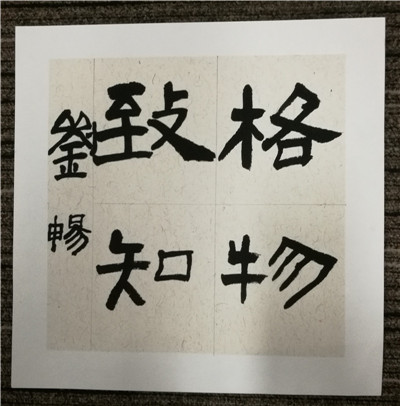 格物
致知
劉暢